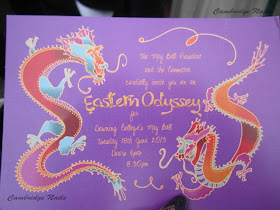 Cambridge Nails
The May Ball President
and the Committee
cordially invite you on an
Eastern Odyssey
for
Downing College's May Ball
Tuesday 18th June 2013
Dress:
8:30pm
Cambridge Nails